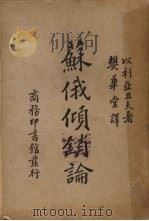 以利亞且夫著
樊華堂譯
蘇俄傾銷論
商務印書館發行